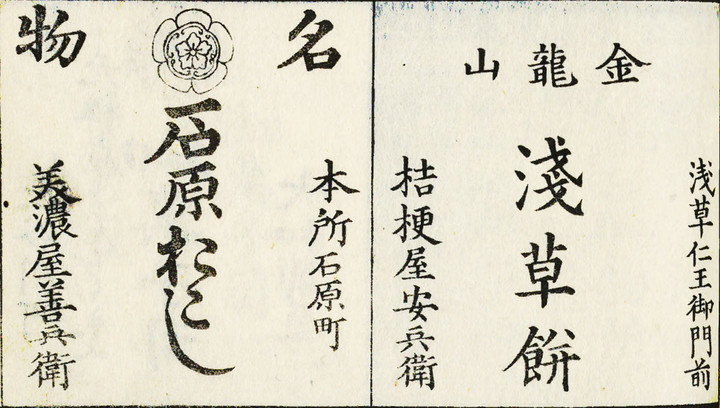 浅草仁王御門前
金龍山
淺草餅
桔梗屋安兵衛
名物
本所石原町
石原おこし
美濃屋善兵衛